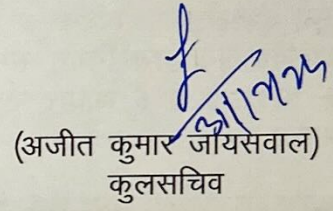 (अजीत कुमार जायसवाल)
कुलसचिव